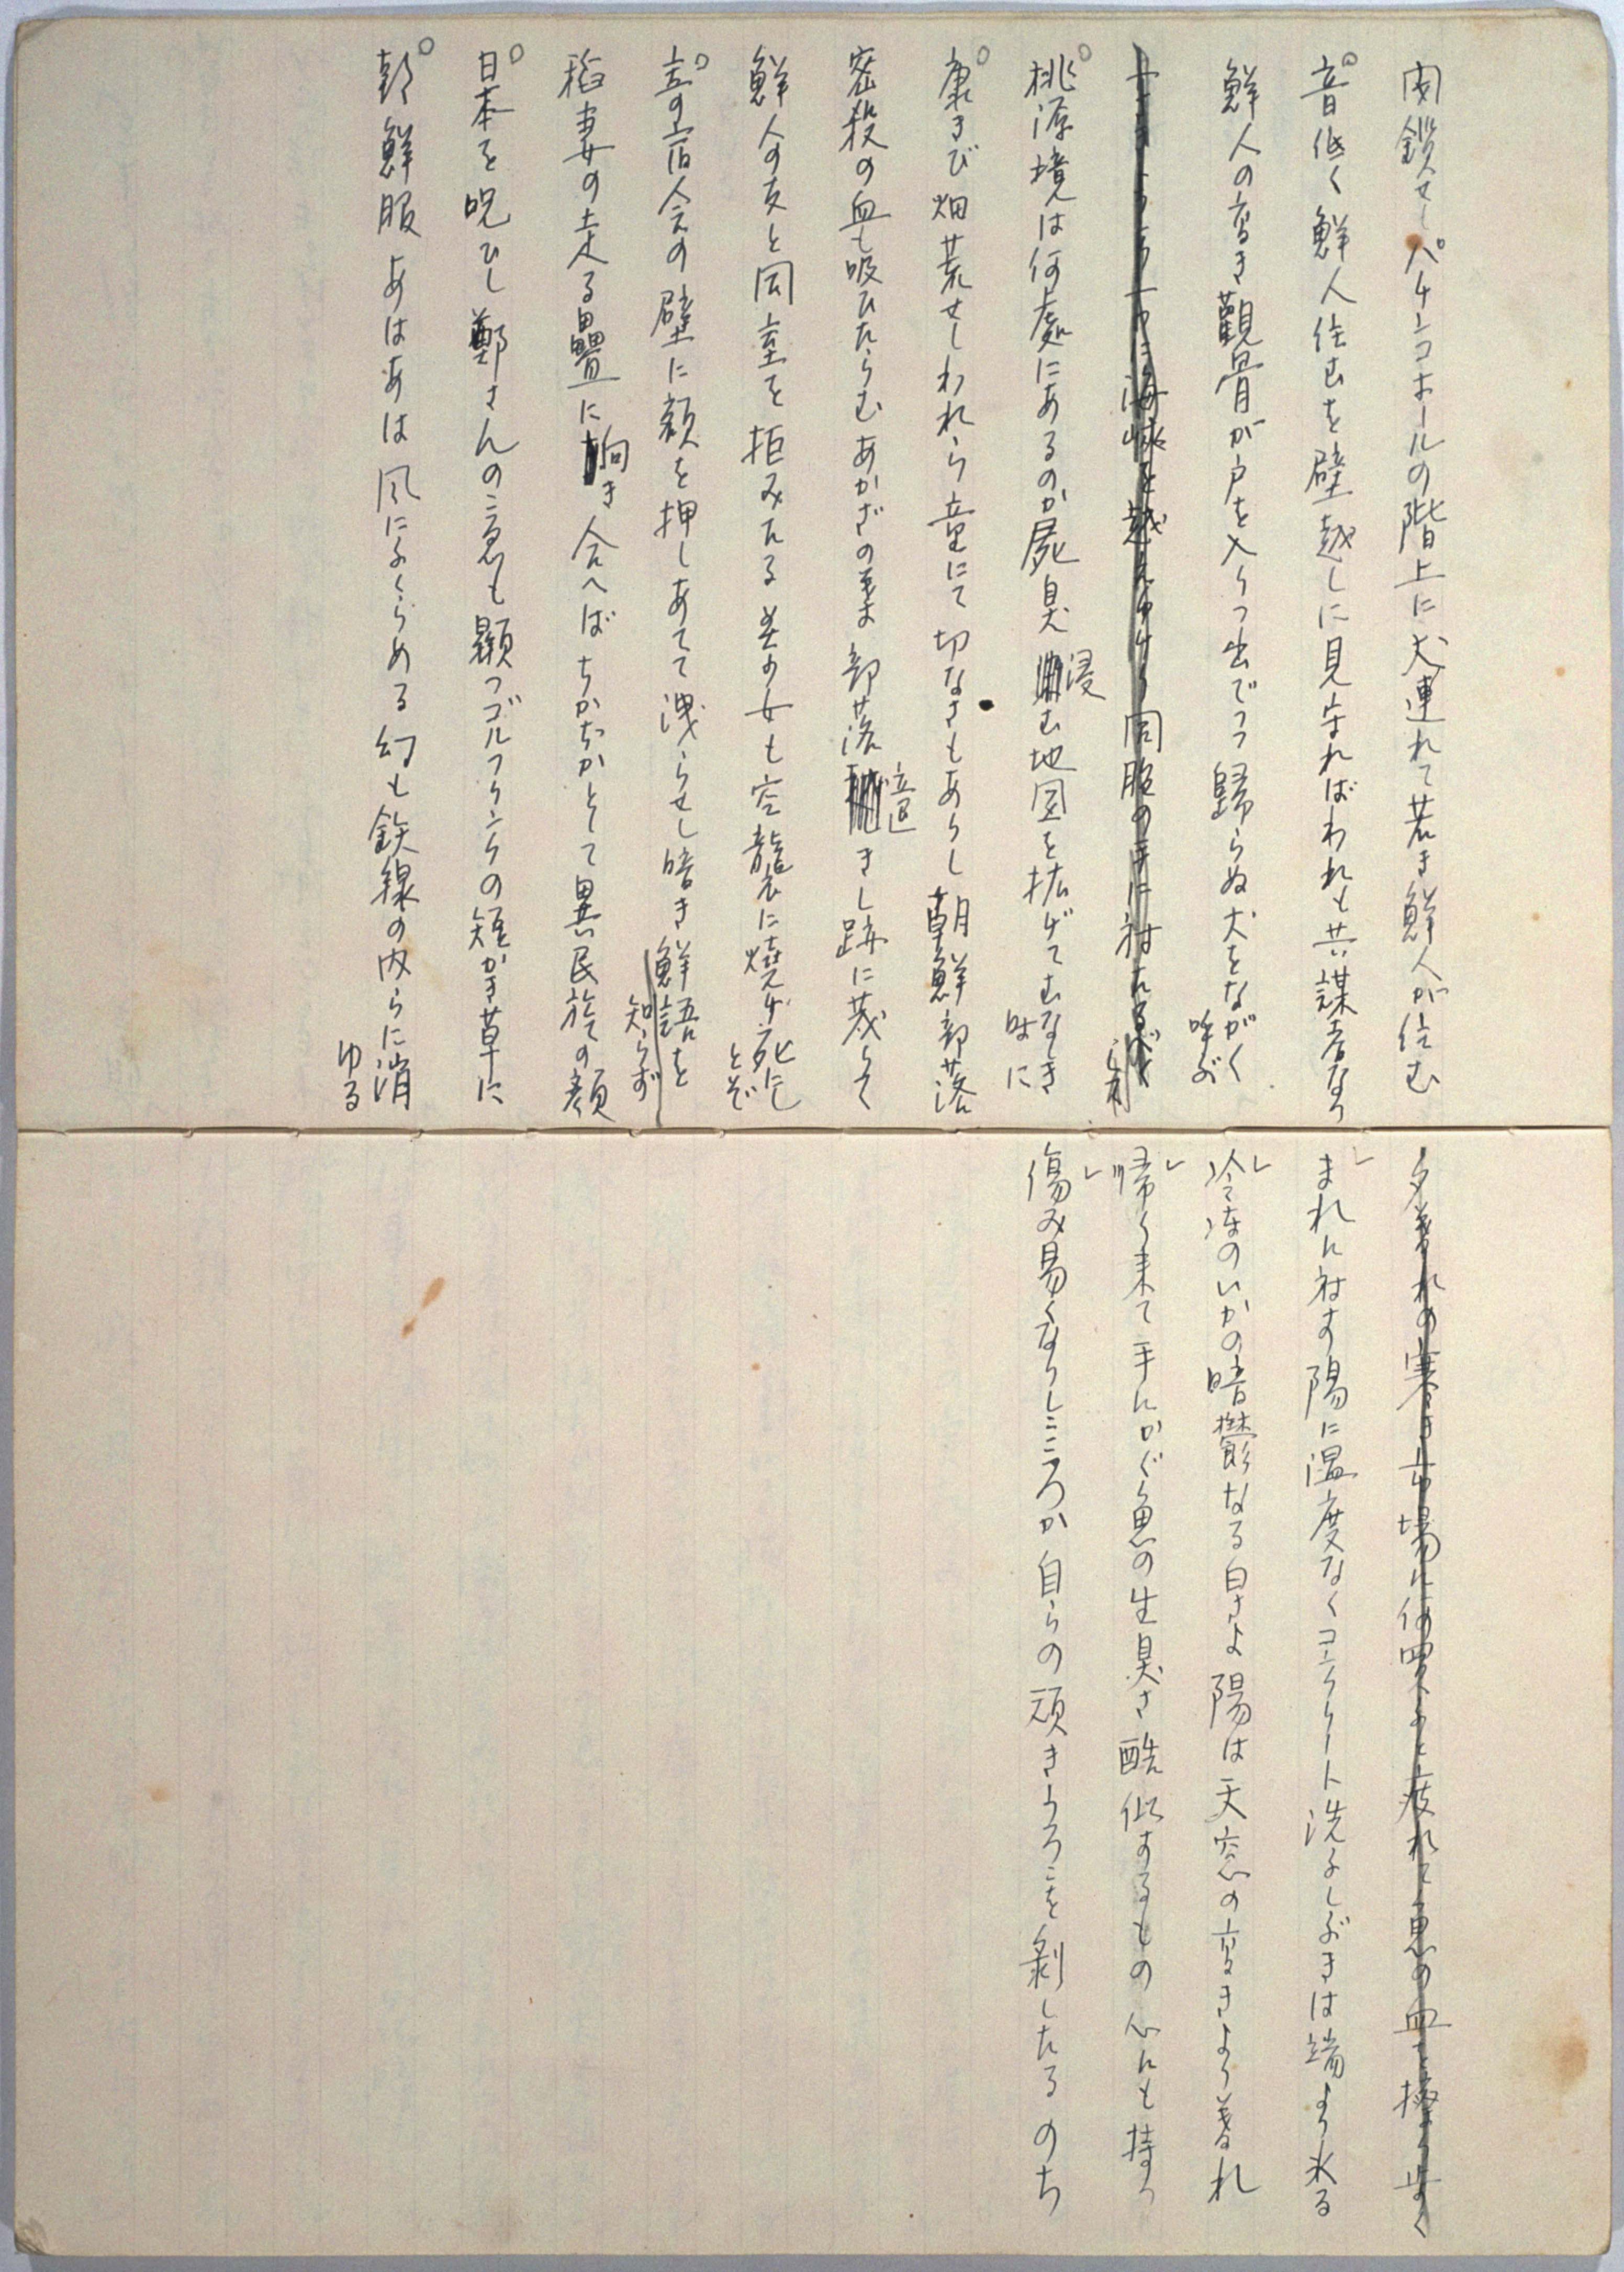 閉鎖せしパチンコホールの階上に犬連れて若き鮮人が住む
音低く鮮人住むを壁越しに見守ればわれも共謀者なり
鮮人の高き觀骨が戸を入りつ出でつつ歸らぬ犬をながく呼ぶ
海峡を越えゆけり同胞の手に
桃源境は何處にあるのか屍臭浸む地図を拡げてむなき時に
唐きび畑荒せしわれら童にて切なさもあらし朝鮮部落
密殺の血も吸ひたらむあかざの葉部落立退きし跡に茂りて
鮮人の友と同室を拒みたる美少女も空襲に燒け死にしとぞ
京の宿舍の壁に額を押しあてて洩らせし暗き鮮語を知らず
稻妻の走る疊に向き合へばちかぢかとして異民族の顔
日本を呪ひし鄭さんの言も顯つゴルフリンクの短かき草に
朝鮮服あはあは風にふくらめる幻も鉄線の内らに消ゆる
夕暮れの寒き市場に何買ふと疲れて魚の血を擇り歩く
まれに射す陽に温度なくコンクリート洗ふしぶきは端より氷る
冷凍のいかの暗鬱なる白さよ陽は天窓の高きより暮れ
帰り来て手にかぐ魚の生臭さ酷似するもの心にも持つ
傷み易くなりしこころか自らの頑きうろこを剥したるのち